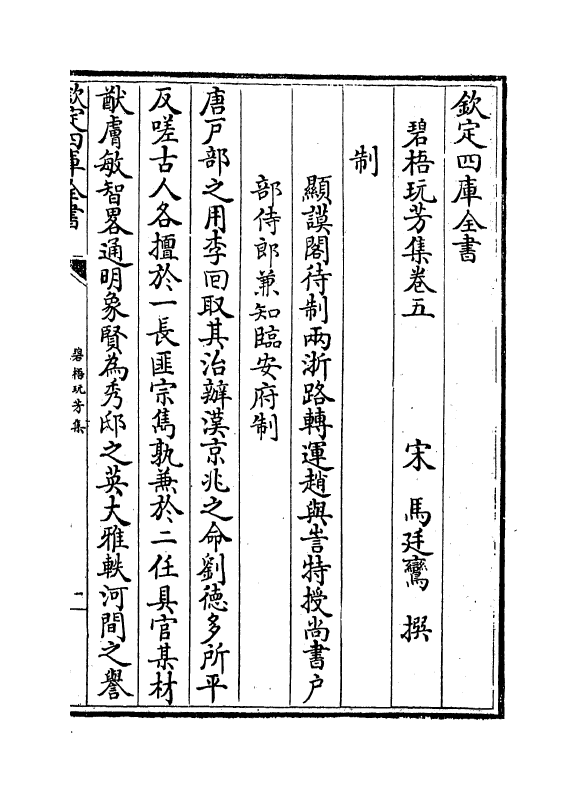 欽定四庫全書
碧梧玩芳集卷五
宋 馬廷鸞 撰
制
顯謨閣待制兩浙路轉運趙與訔特授尚書户
部侍郎兼知臨安府制
唐戸部之用李回取其治辦漢京兆之命劉徳多所平
反嗟古人各擅於一長匪宗雋孰兼於二任具官某材
猷膚敏智畧通明象賢為秀邸之英大雅軼河間之譽
欽定四庫全書
碧梧玩芳集
一